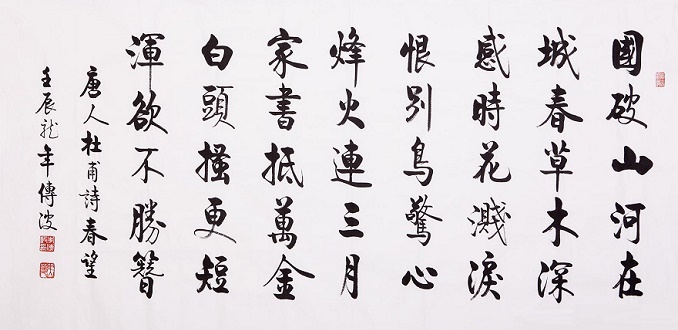 國破山河在
城春草木深
感時花濺淚
恨别鳥驚心
烽火連三月
家書抵萬金
白頭搔更短
渾欲不勝簪
唐人杜甫詩春望
壬辰龍年傳波